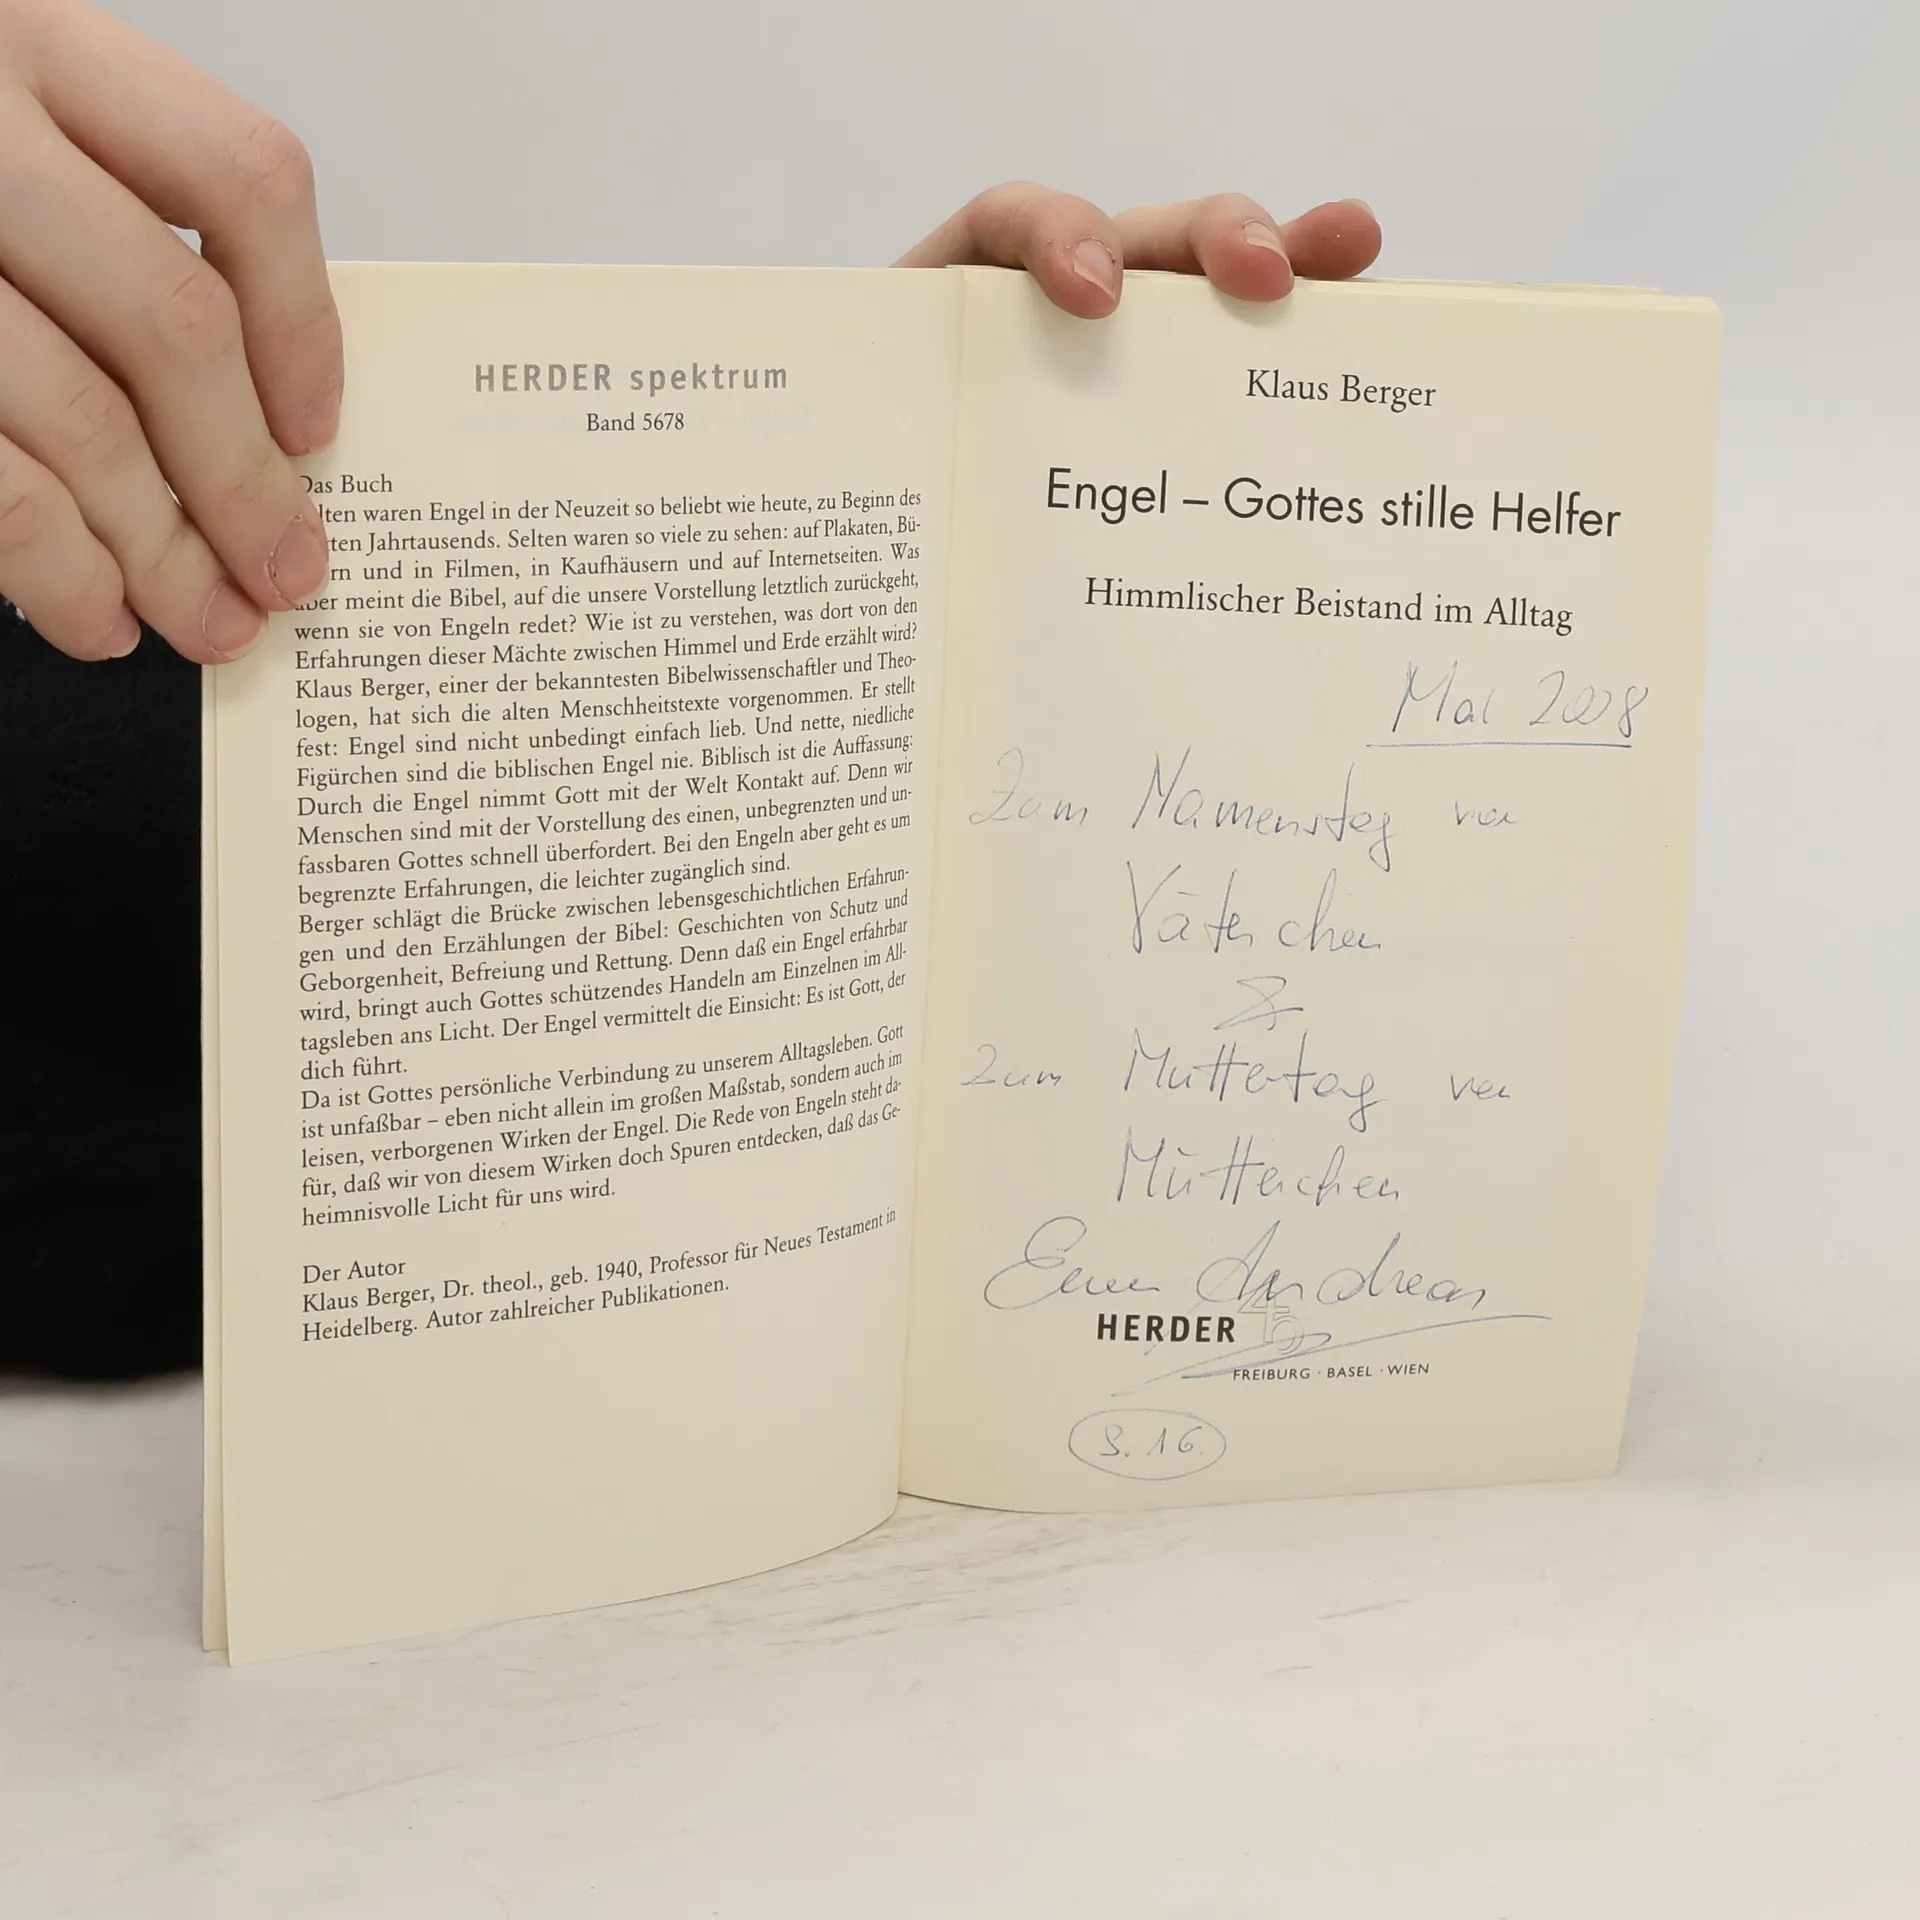 HERDER spektrum
Band 5678
Das Buch
lten waren Engel in der Neuzeit so beliebt wie heute, zu Beginn des
ten Jahrtausends. Selten waren so viele zu sehen: auf Plakaten, Bü-
rn und in Filmen, in Kaufhäusern und auf Internetseiten. Was
aber meint die Bibel, auf die unsere Vorstellung letztlich zurückgeht,
wenn sie von Engeln redet? Wie ist zu verstehen, was dort von den
Erfahrungen dieser Mächte zwischen Himmel und Erde erzählt wird?
Klaus Berger, einer der bekanntesten Bibelwissenschaftler und Theo-
logen, hat sich die alten Menschheitstexte vorgenommen. Er stellt
fest: Engel sind nicht unbedingt einfach lieb. Und nette, niedliche
Figürchen sind die biblischen Engel nie. Biblisch ist die Auffassung:
Durch die Engel nimmt Gott mit der Welt Kontakt auf. Denn wir
Menschen sind mit der Vorstellung des einen, unbegrenzten und un-
fassbaren Gottes schnell überfordert. Bei den Engeln aber geht es um
begrenzte Erfahrungen, die leichter zugänglich sind.
Berger schlägt die Brücke zwischen lebensgeschichtlichen Erfahrun-
gen und den Erzählungen der Bibel: Geschichten von Schutz und
Geborgenheit, Befreiung und Rettung. Denn daß ein Engel erfahrbar
wird, bringt auch Gottes schützendes Handeln am Einzelnen im All-
tagsleben ans Licht. Der Engel vermittelt die Einsicht: Es ist Gott, der
dich führt.
Da ist Gottes persönliche Verbindung zu unserem Alltagsleben. Gott
ist unfaßbar – eben nicht allein im großen Maßstab, sondern auch im
leisen, verborgenen Wirken der Engel. Die Rede von Engeln steht da-
für, daß wir von diesem Wirken doch Spuren entdecken, daß das Ge-
heimnisvolle Licht für uns wird.
Der Autor
Klaus Berger, Dr. theol., geb. 1940, Professor für Neues Testament in
Heidelberg. Autor zahlreicher Publikationen.
Klaus Berger
Engel – Gottes stille Helfer
Himmlischer Beistand im Alltag
Mai 2008
Zum Namenstag von
Väterchen
&
Zum Muttertag von
Mütterchen
Euer Andreas
HERDER
FREIBURG · BASEL · WIEN
S. 16.